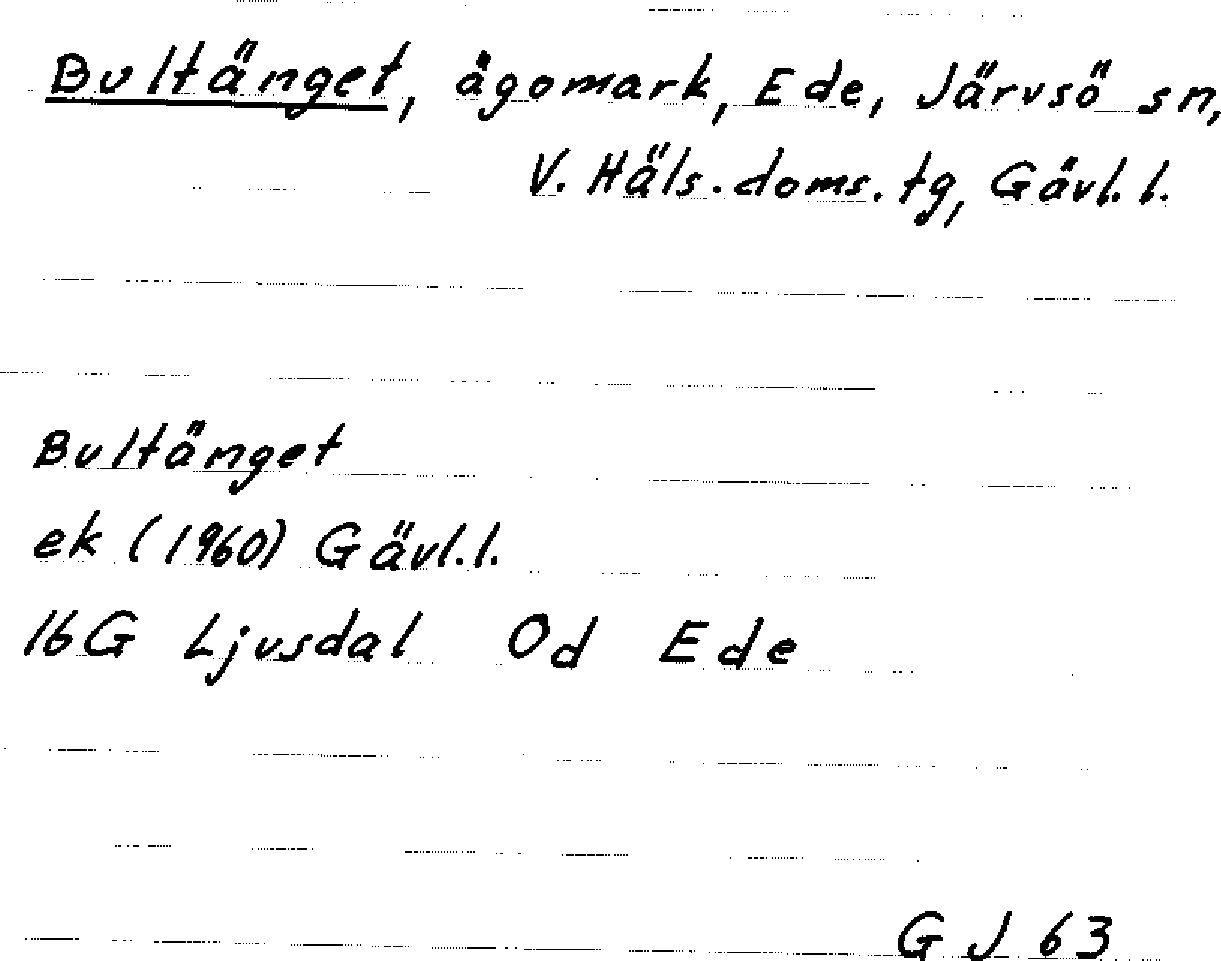 Bultänget, ägomark, Ede, Järvsö sn,
V. Häls. doms. tg, Gävl. l.
Bultänget
ek (1960) Gävl. l.
16G Ljusdal 0d Ede
G J 63